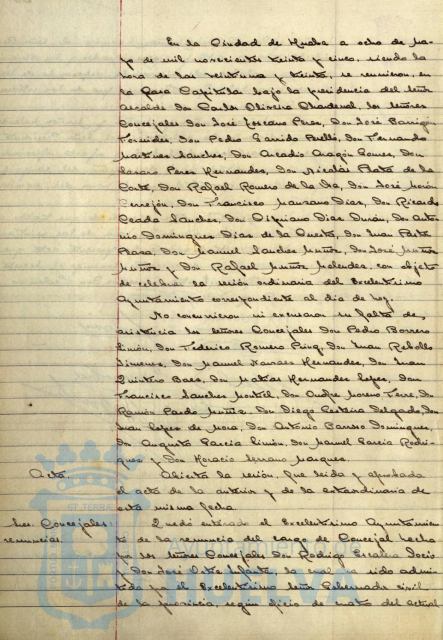 En la Ciudad de Huelva a ocho de Ma-
yo de mil novecientos treinta y cinco, siendo la
hora de las veintiuna y treinta, se reunieron, en
la Casa Capitular bajo la presidencia del Señor
Alcalde Don Carlos Oliveira Chardenal, los Señores
Concejales Don José Lozcano Perez, Don José Barrigón
Don Pedro Garrido Perelló, Don Fernando
Martinez Sanchez, Don Arcadio Aragón Gomez, Don
Lazaro Perez Hernandez, Don Nicolás Plata de la
Corte, Don Rafael Romero de la Don José Morón
Cerrejón, Don Francisco Manzano Diaz, Don Ricardo
Ceada Sanchez, Don Cipriano Diaz Durán, Don Anto-
nio Dominguez Diaz de la Cuesta, Don Juan
Don Manuel Sanchez Muñoz, Don José Muñoz
Muñoz y Don Rafael Muñoz con objeto
de celebrar la sesión ordinaria del Excelentísimo
Ayuntamiento correspondiente al dia de hoy.
No concurrieron ni excusaron su falta de
asistencia los Señores Concejales Don Pedro Borrero
Limón, Don Federico Romero Don Juan Rebollo
Jimenez, Don Manuel Hernandez, Don Juan
Quintero Baez, Don Matias Hernandez Lopez, Don
Francisco Sanchez Don Andre Moreno Don
Ramón Pardo Muñiz, Don Diego Delgado, Don
Juan Lopez de Mora, Don Antonio Barroso Dominguez,
Don Augusto Garcia Limón, Don Manuel Garcia Rodri-
guez y Don Horacio Serrano Marquez.
Acta. Abierta la sesión, fué leida y aprobada
el acta de la anterior y de la extraordinaria de
esta misma fecha.
Concejales Quedó enterado el Excelentísimo Ayuntamien-
renuncias. to de la renuncia del cargo de Concejal hecha
por los Señores Concejales Don Rodrigo
y Don José Infante, la cual ha sido admi-
tida por el Excelentísimo Señor Gobernador civil
de la provincia, según oficio de cuatro del actual